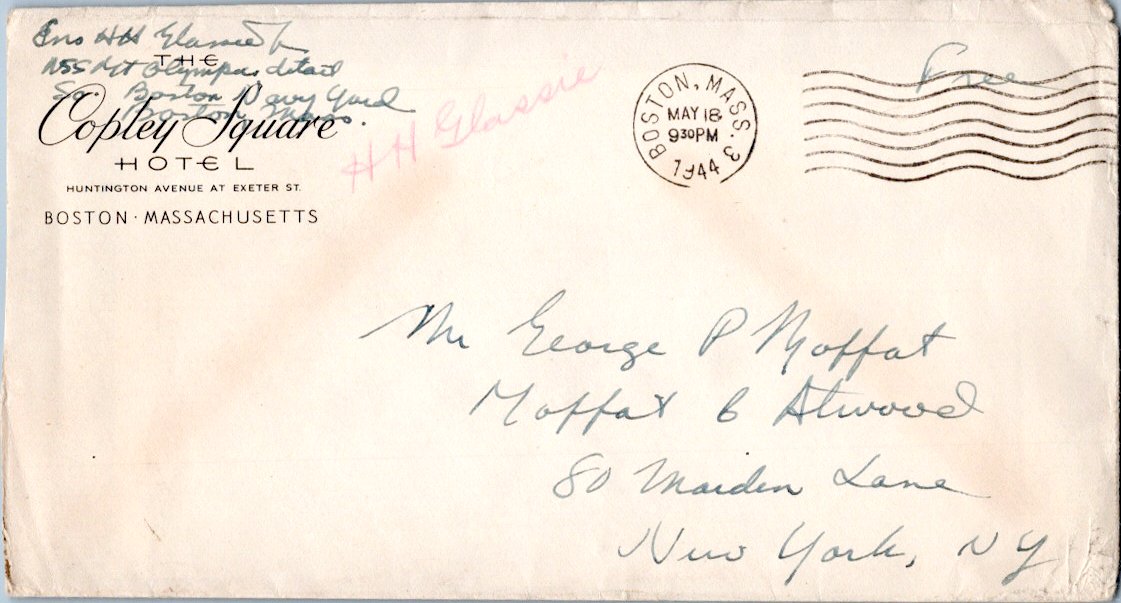 Ens HH Glassie Jr
USS Mt Olympus detail
So Boston Navy Yard
Boston Mass.
THE
Copley Square
HOTEL
HUNTINGTON AVENUE AT EXETER ST.
BOSTON · MASSACHUSETTS
HH Glassie
BOSTON, MASS. 3
MAY 18
9 30 PM
1944
Free
Mr George P Moffat
Moffat & Atwood
80 Maiden Lane
New York, NY